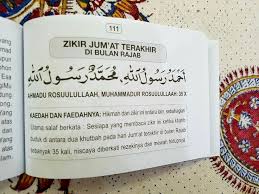 111
ZIKIR JUM'AT TERAKHIR
DI BULAN RAJAB
أَحْمَدُ رَسُوْلُ اللهِ، مُحَمَّدٌ رَسُوْلُ اللهِ
AHMADU ROSUULULLAAH, MUHAMMADUR ROSUULULLAAH: 35 X
KAEDAH DAN FAEDAHNYA: Hikmah dan zikir ini antara lain, sebahagian
Ulama salaf berkata : Sesiapa yang membaca zikir ini ketika khatib
duduk di antara dua khutbah pada hari Jum'at terakhir di bulan Rajab
sebanyak 35 kali, niscaya diberkati rezekinya dan mewah